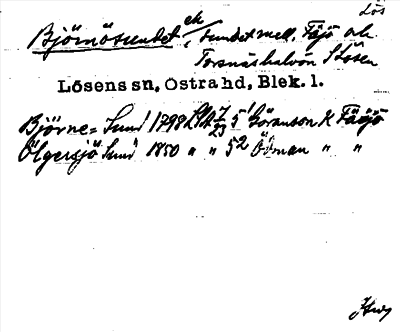 Lös
Björnösundet ek, sundet mell. Fäjö och
Torsnäshalvön S Lösen
Lösens sn, Östra hd, Blek. l.
Björne= Sund 1798 5¹ Göranson K Fäjö
Ölgersjö Sund 1850 " " 5² Ödman " "